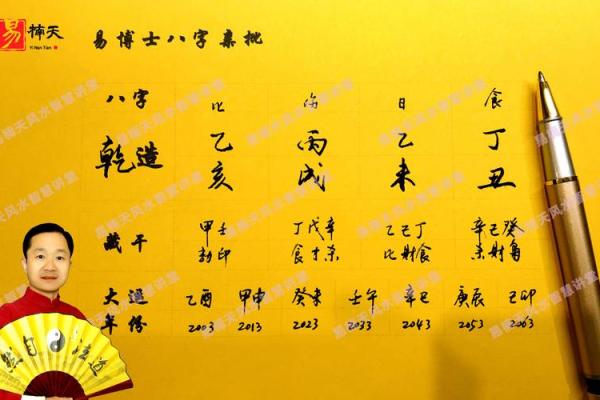 易 楠天
Yi Nan Tian
易博士八字亲批
八字 比 伤 日 食
乾造 乙 丙 乙 丁
亥 戌 未 丑
藏干 甲壬 丁戊辛 乙己丁 辛己癸
劫印 食才杀 比财食 杀财枭
大运 乙酉 甲申 癸未 壬午 辛巳 庚辰 己卯
年份 2003 2013 2023 2033 2043 2053 2063
易楠天风水智慧讲堂
道法自然